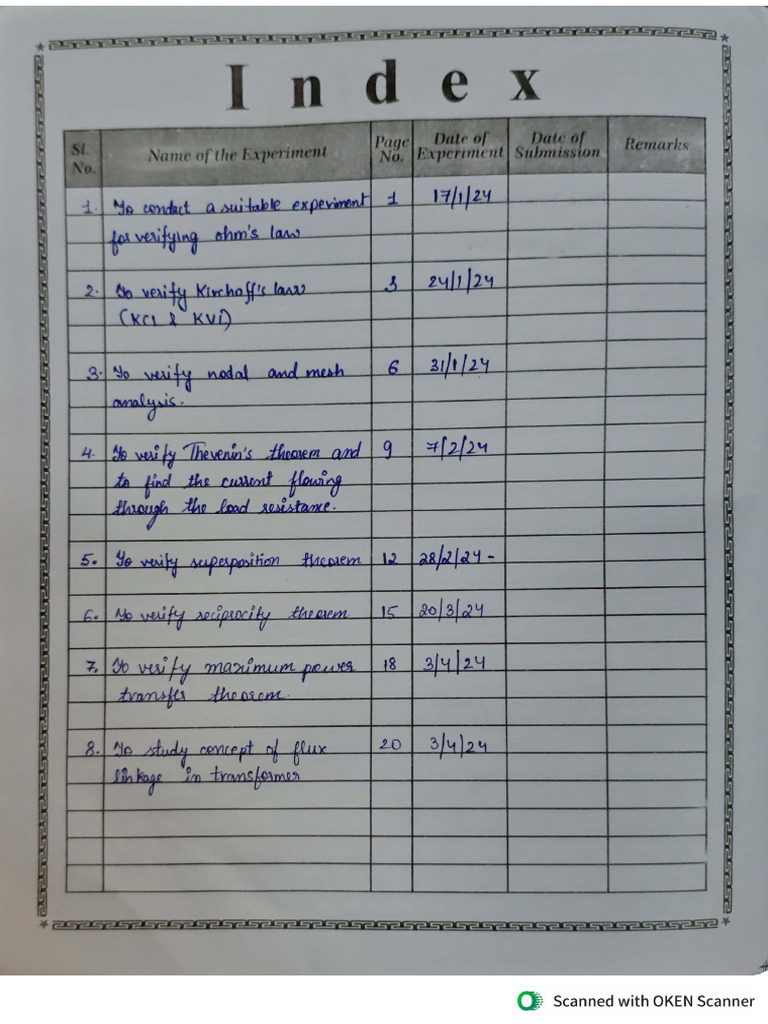 Index
Sl. No. Name of the Experiment Page No. Date of Experiment Date of Submission Remarks
1. To conduct a suitable experiment 1 17/1/24
for verifying ohm's law
2. To verify Kirchoff's law 3 24/1/24
(KCl & KVl)
3. To verify nodal and mesh 6 31/1/24
analysis.
4. To verify Thevenin's theorem and 9 7/2/24
to find the current flowing
through the load resistance.
5. To verify superposition theorem 12 28/2/24 -
6. To verify reciprocity theorem 15 20/3/24
7. To verify maximum power 18 3/4/24
transfer theorem.
8. To study concept of flux 20 3/4/24
linkage in transformer
Scanned with OKEN Scanner